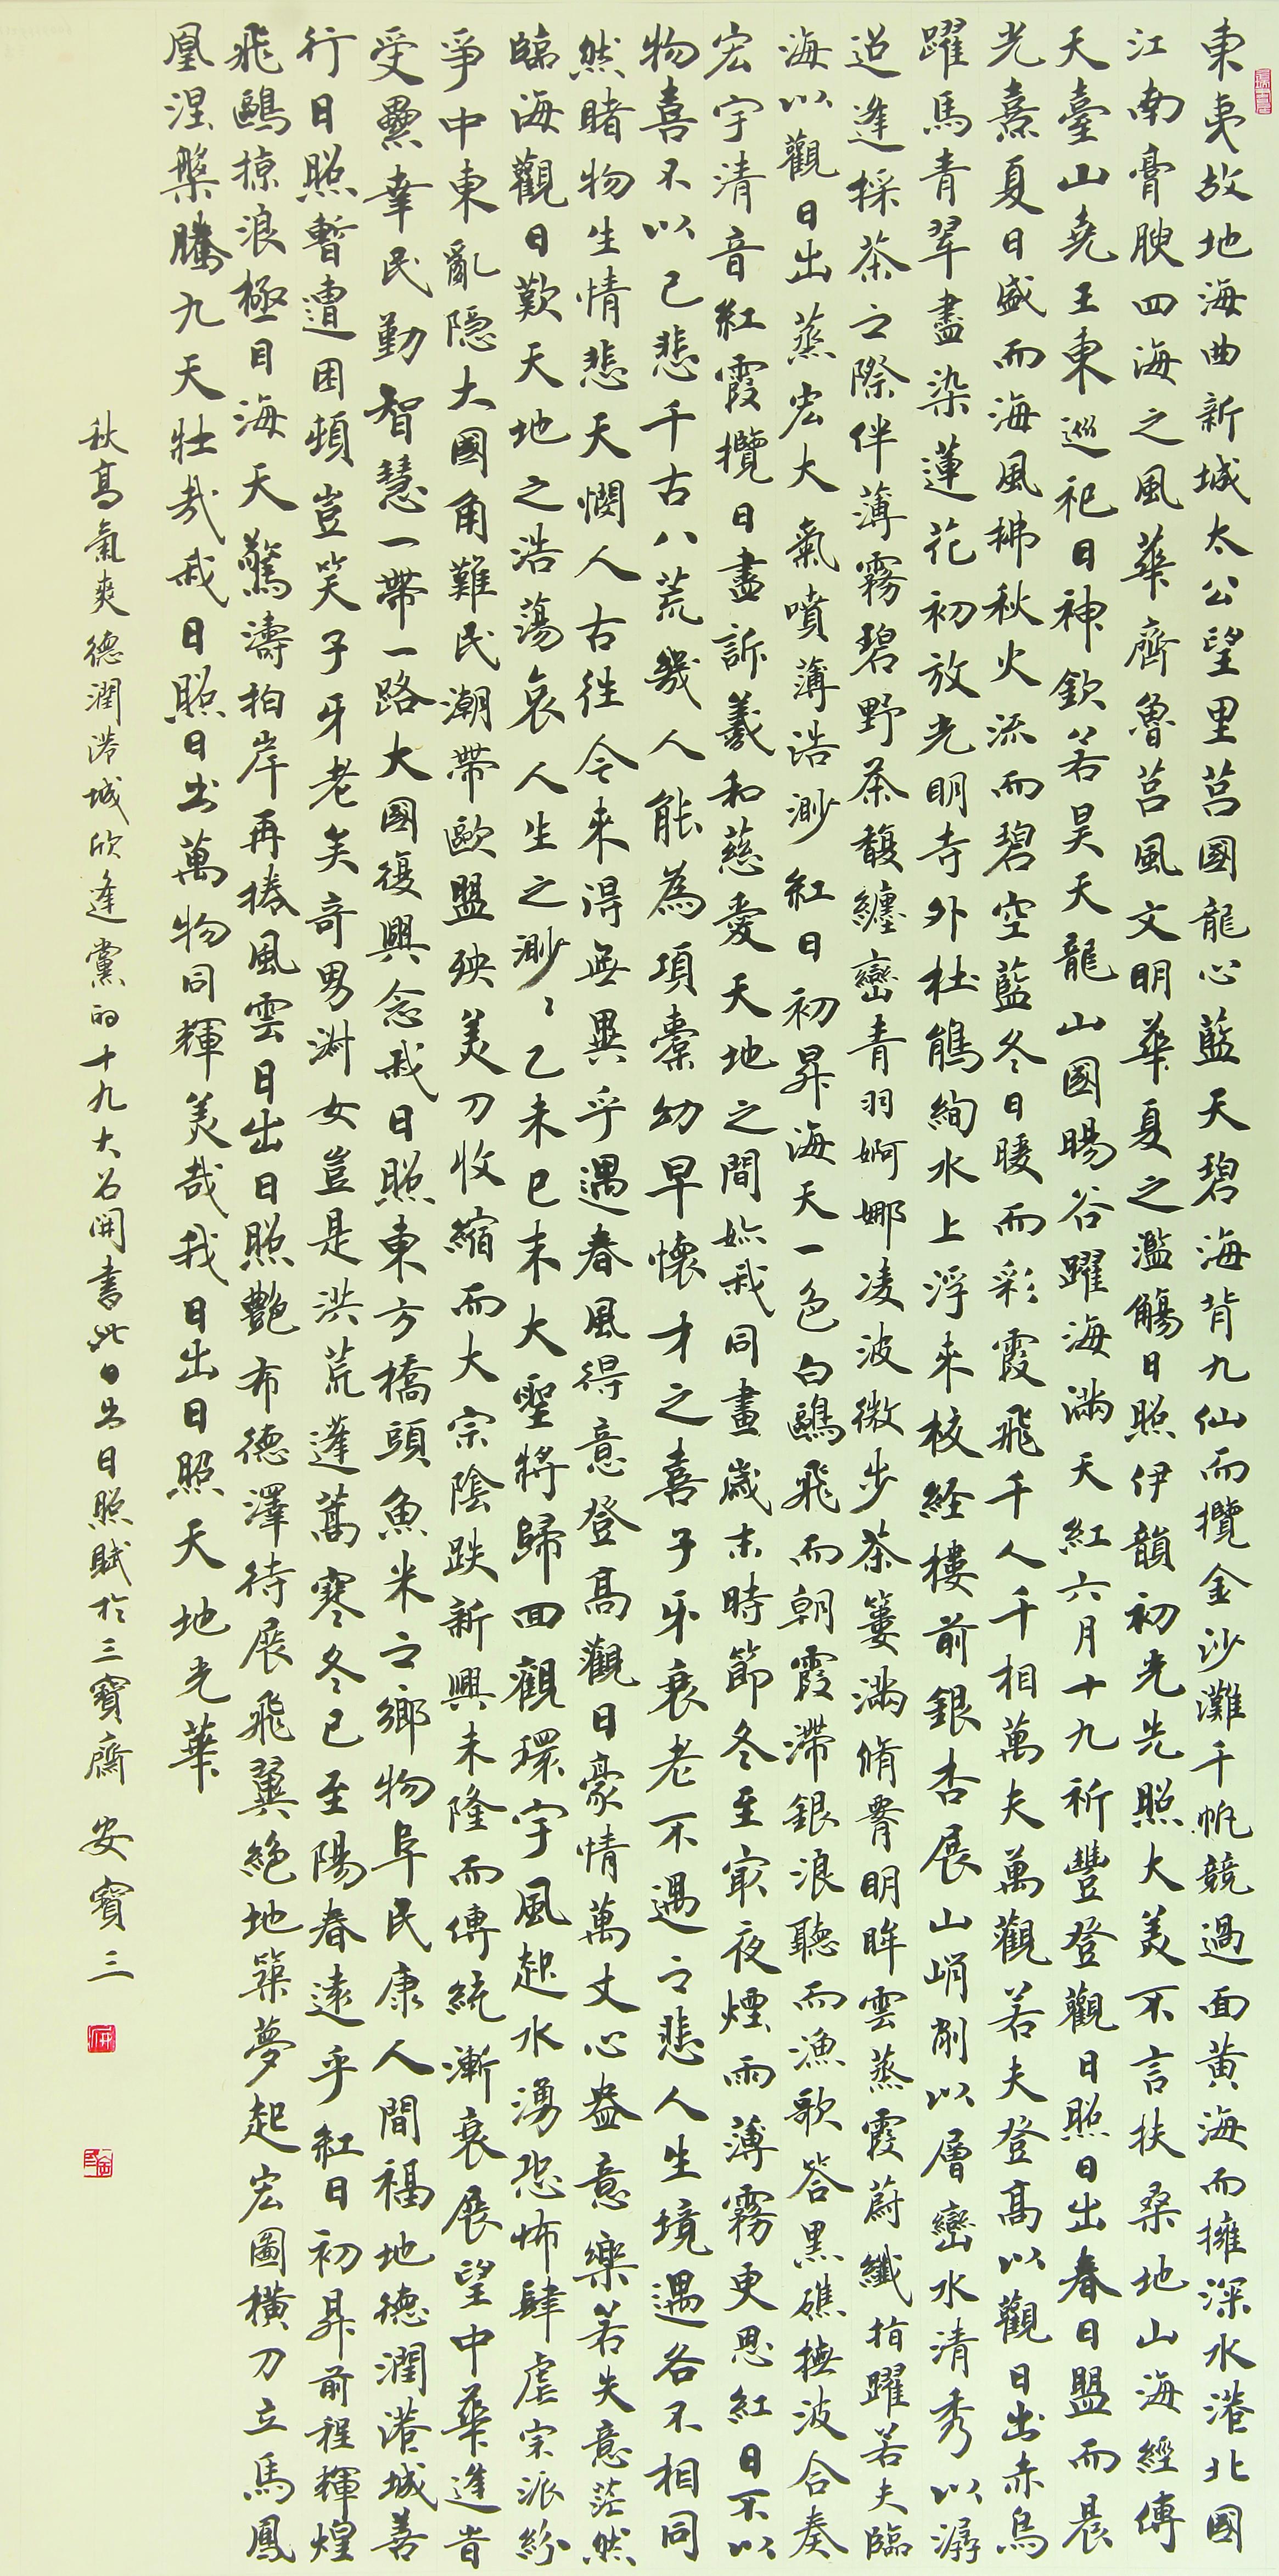 東夷故地海曲新城太公望里莒國龍心藍天碧海背九仙而攬金沙灘千帆競過面黃海而擁深水港北國
江南膏腴四海之風華齊魯莒風文明華夏之濫觴日照伊韻初光先照大美不言扶桑地山海經傳
天臺山堯王東巡祀日神欽若昊天龍山國暘谷躍海滿天紅六月十九祈豐登觀日照日出春日盟而晨
光熹夏日盛而海風拂秋火流而碧空藍冬日暖而彩霞飛千人千相萬夫萬觀若夫登高以觀日出赤烏
躍馬青翠盡染蓮花初放光明寺外杜鵑絢水上浮來校經樓前銀杏展山峭削以層巒水清秀以潺
迢逢採茶之際伴薄霧碧野茶馥纏巒青羽婀娜凌波微步茶簍滿脩臂明眸雲蒸霞蔚纖指躍若夫臨
海以觀日出蒸宏大氣噴薄浩渺紅日初昇海天一色白鷗飛而朝霞滯銀浪聽而漁歌答黑礁撫波合奏
宏宇清音紅霞攬日盡訴羲和慈愛天地之間妳我同畫歲末時節冬至寂夜煙雨薄霧更思紅日不以
物喜不以己悲千古八荒幾人能為項橐幼早懷才之喜子牙衰老不遇之悲人生境遇各不相同
然睹物生情悲天憫人古往今來得無異乎遇春風得意登高觀日豪情萬丈心盎意樂若失意茫然
臨海觀日歎天地之浩蕩哀人生之渺渺乙未已末大聖將歸回觀環宇風起水湧恐怖肆虐宗派紛
爭中東亂隱大國角難民潮帶歐盟殃美刀收縮而大宗陰跌新興未隆而傳統漸衰展望中華逢昔
受纍幸民勤智慧一帶一路大國復興念我日照東方橋頭魚米之鄉物阜民康人間福地德潤港城善
行日照暫遭困頓豈笑子牙老矣奇男淑女豈是洪荒蓬蒿寒冬已至陽春遠乎紅日初昇前程輝煌
飛鷗掠浪極目海天驚濤拍岸再捲風雲日出日照艷布德澤待展飛翼絕地築夢起宏圖橫刀立馬鳳
凰涅槃騰九天壯哉我日照日出萬物同輝美哉我日出日照天地光華
秋高氣爽德潤港城欣逢黨的十九大召開書此日出日照賦於三寶齋 安寶三